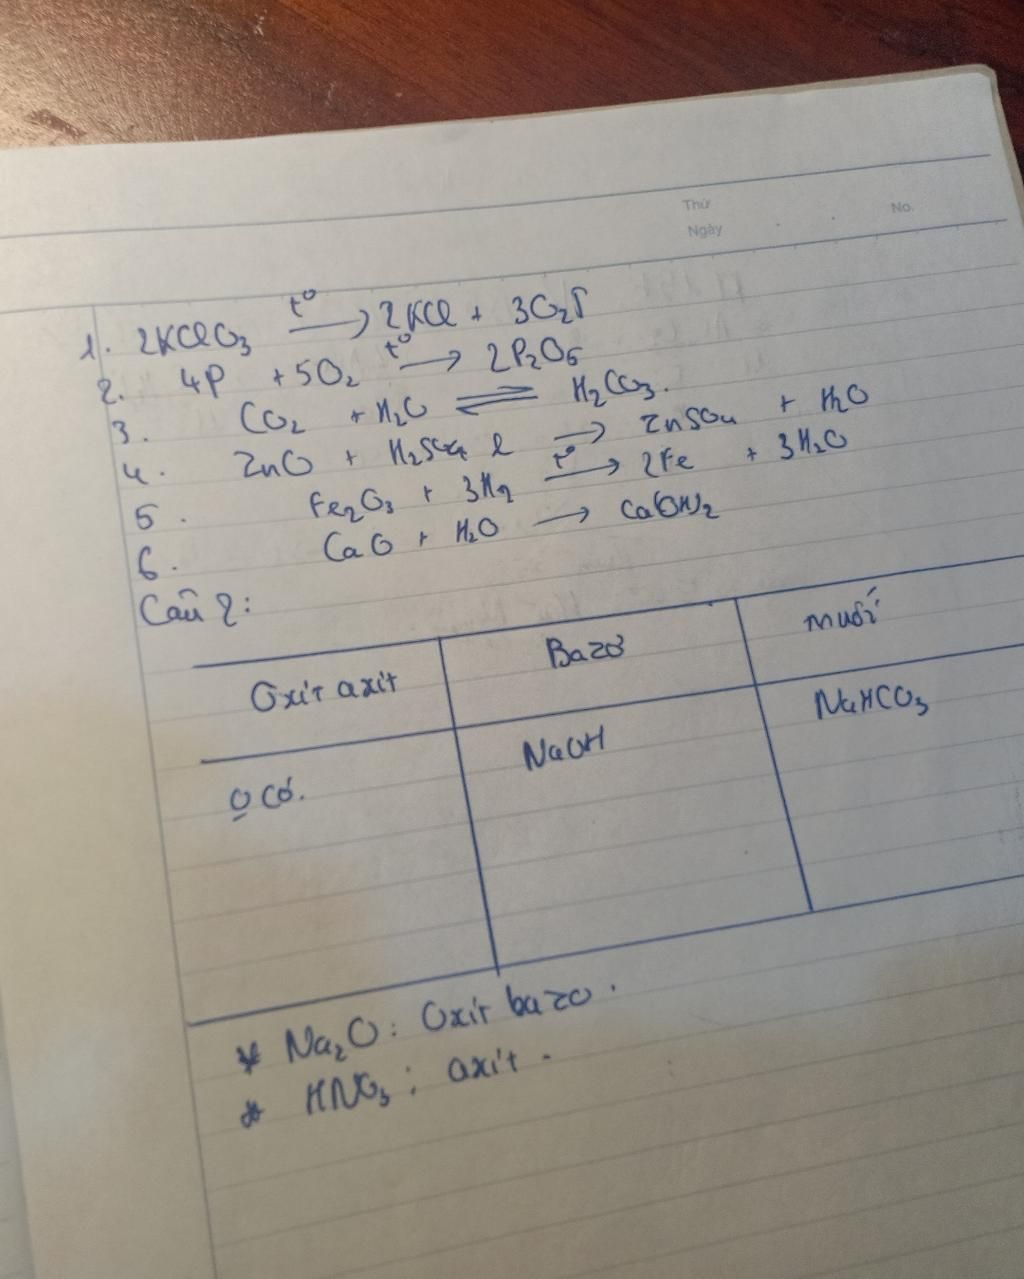 Thứ
No.
Ngày
1. 2KClO3 t° → 2KCl + 3O2↑
2. 4P + 5O2 t° → 2P2O5
3. CO2 + H2O ⇌ H2CO3.
4. ZnO + H2SO4 l → ZnSO4 + H2O
5. Fe2O3 + 3H2 t° → 2Fe + 3H2O
6. CaO + H2O → Ca(OH)2
Câu 2:
Oxit axit Bazơ muối
O có. NaOH NaHCO3
* Na2O: Oxit bazo.
* HNO3: axit.